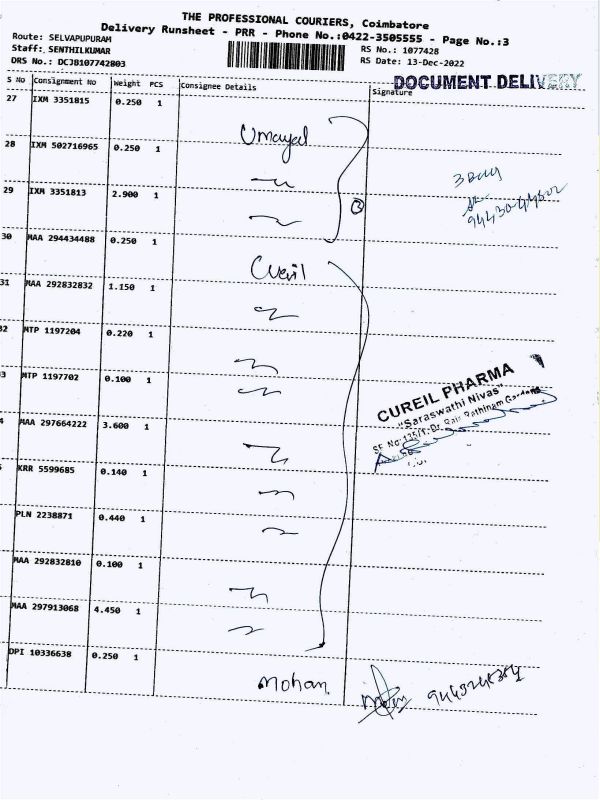 THE PROFESSIONAL COURIERS, Coimbatore
Delivery Runsheet - PRR - Phone No.:0422-3505555 - Page No.:3
Route: SELVAPUPURAM
Staff: SENTHILKUMAR
DRS No.: DCJB107742803
RS No.: 1077428
RS Date: 13-Dec-2022
DOCUMENT DELIVERY
S No Consignment No Weight PCS Consignee Details Signature
27 IXM 3351815 0.250 1
Umayal
28 IXM 502716965 0.250 1
29 IXM 3351813 2.900 1
3
30 MAA 294434488 0.250 1
Cureil
31 MAA 292832832 1.150 1
32 MTP 1197204 0.220 1
3 MTP 1197702 0.100 1
CUREIL PHARMA
"Saraswathi Nivas"
4 MAA 297664222 3.600 1
KRR 5599685 0.140 1
PLN 2238871 0.440 1
MAA 292832810 0.100 1
MAA 297913068 4.450 1
DPI 10336638 0.250 1
mohan